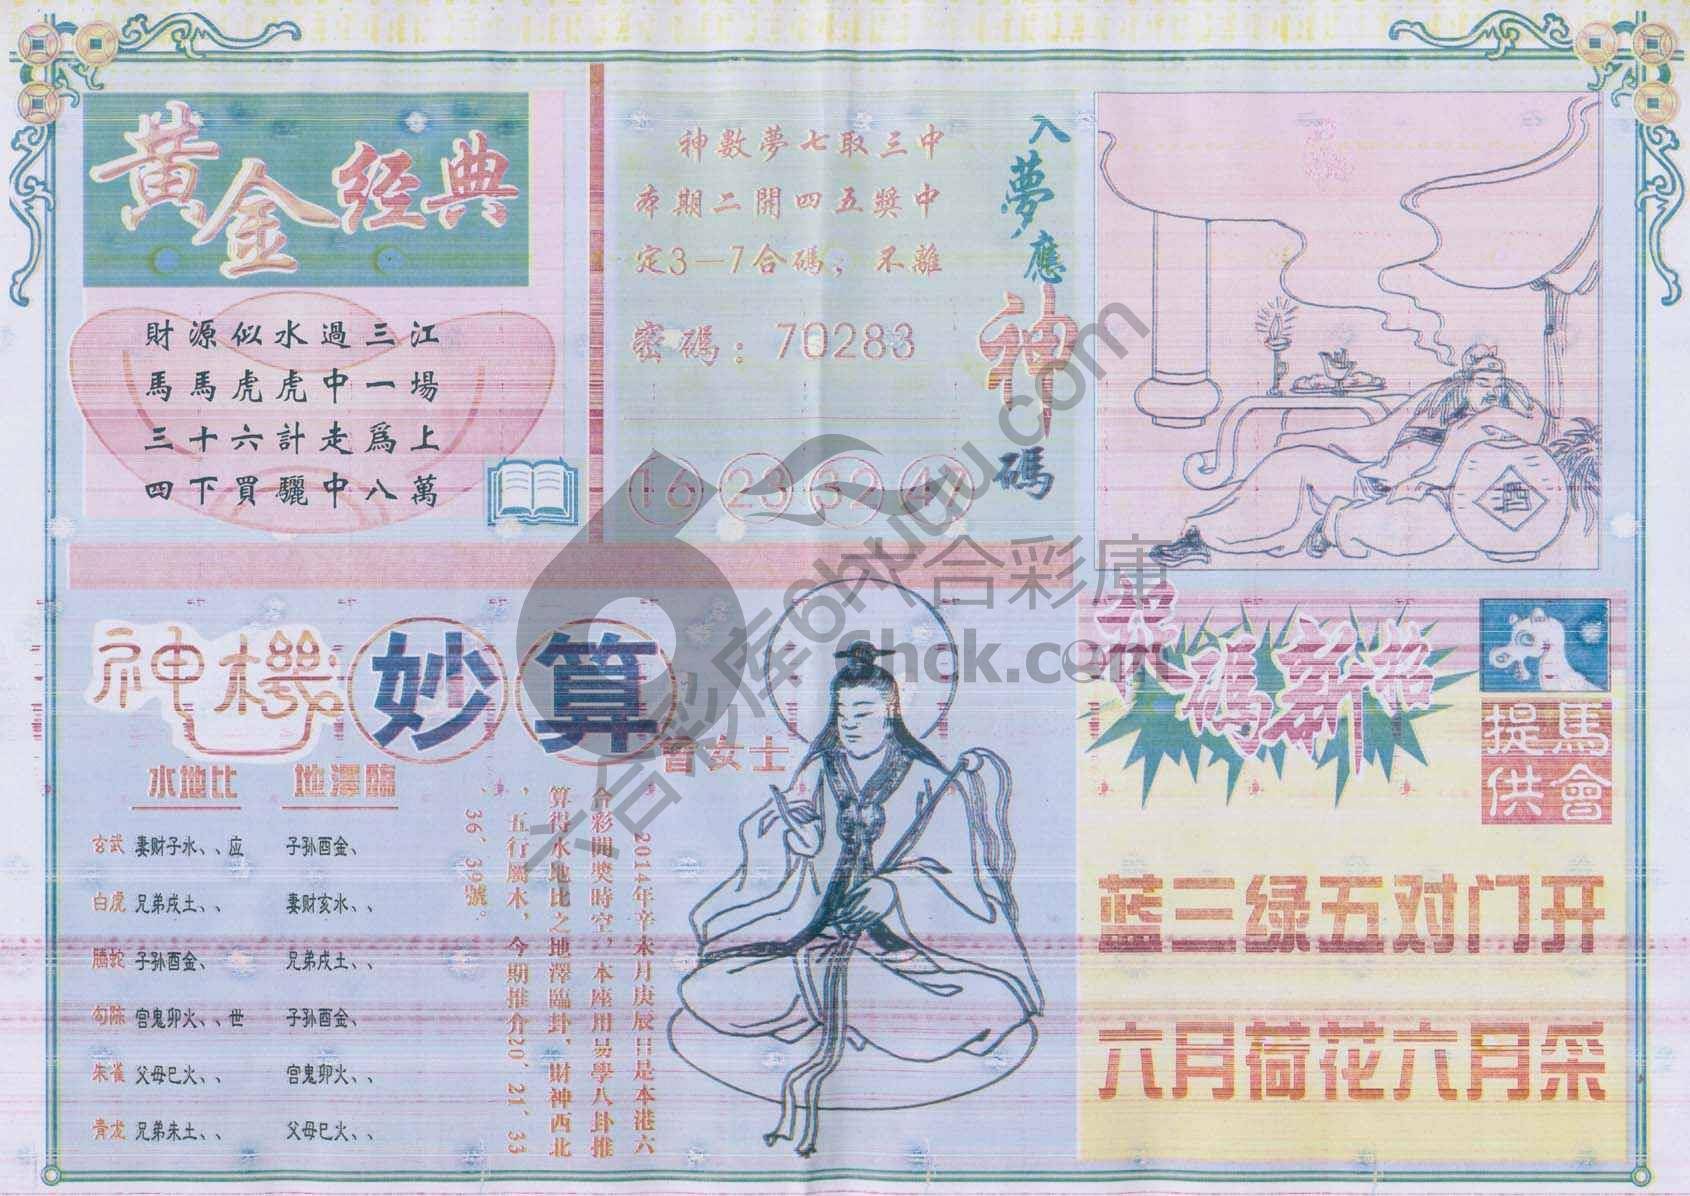 黃金經典
財源似水過三江
馬馬虎虎中一場
三十六計走爲上
四下買驪中八萬
入夢應神碼
神數夢七取三中
本期二開四五獎中
定3—7合碼；不離
密碼：70283
16 23 32 47
酒
神機妙算
曾女士
水地比 地澤臨
玄武 妻财子水、、应 子孙酉金、
白虎 兄弟戌土、、 妻财亥水、、
螣蛇 子孙酉金、 兄弟戌土、、
勾陈 官鬼卯火、、世 子孙酉金、
朱雀 父母巳火、、 官鬼卯火、、
青龙 兄弟未土、、 父母巳火、、
2014年辛未月庚辰日是本港六
合彩開獎時空，本座用易學八卦推
算得水地比之地澤臨卦，財神西北
，五行屬木，今期推介20、21、33
、36、39號。
碼新
馬會提供
蓝三绿五对门开
六月荷花六月采
六合彩库6huuu.com
六合彩庫
6hck.com